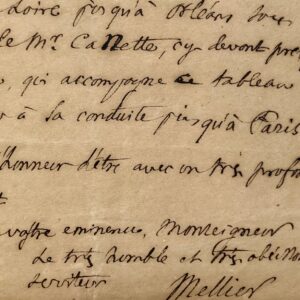 Loire jusqu'à Orléans sous
le Mr. Canette, cy devant pre
, qui accompagne ce tableau
r à sa conduite jusqu'à Paris
l'honneur d'être avec un très profo
t
votre eminence, Monseigneur
Le très humble et très obéissan
serviteur
Mellier